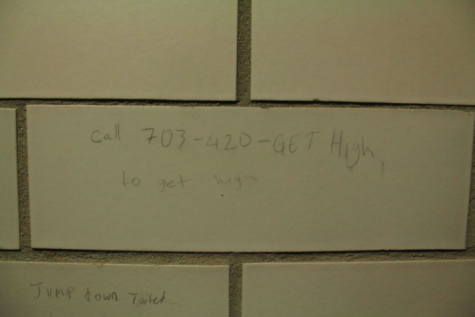 call 703-420-GET High,
to get high
Jump down Toilet